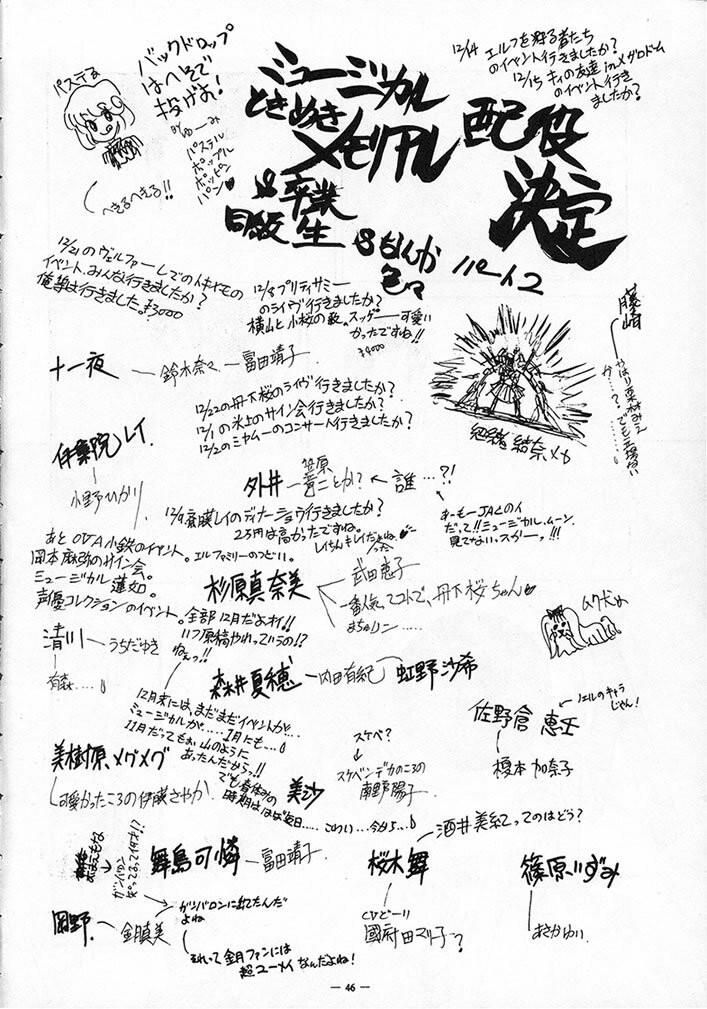 パステる
へきるへきる!!
バックドロップ
はへそで
投げお!
パステル
ポップル
ポッピン
パン
12/14 エルフを狩る者たち
のイベント行きましたか?
12/15 キィの友達inメグロドーム
のイベント行き
ましたか?
ミュージカル
ときめき
メモリアル
配役
決定
&卒業
同級生
&なんか
色々
パート2
12/21のヴェルファーレでの
イベント、みんな行きましたか?
俺等は行きました。¥3000
12/8プリティサミー
のライヴ行きましたか?
横山と小桜の歌。スッゲー可愛い
かったですね!!
¥4000
十一夜
鈴木奈々
富田靖子
12/22の丹下桜のライヴ行きましたか?
12/1の氷上のサイン会行きましたか?
12/2のミヤムーのコンサート行きましたか?
藤崎
やはり栗林みえ
か…?でも広場ない
伊集院レイ
小野ひかり
外井
笠原
誰…?!
あーもーJACのイ
だって!!ミュージカル・ムーン
見てないスかーっ!!!
ディナーショウ行きましたか?
2万円は高かったですね。
あとOVA小鉄のイベント。エルファミリーのつどい。
岡本麻弥のサイン会。
ミュージカル蓮如。
声優コレクションのイベント。全部12月だよオイ!!
いつ原稿やれっていうの!?
ねぇっ!!
杉原真奈美
武田恵子
一番人気ってコトで、丹下桜ちゃん
まちゅりン……
ムク犬め
清川
うちだゆき
有森……
森井夏穂
内田有紀
虹野沙希
12月末には、まだまだイベントが…
ミュージカルが……1月にも…
11月だってもぉ山のように
あったんだからっ!!
でも春休みの
時期はほぼ毎日……こわい…今から…
佐野倉 恵壬
ノエルのキャラ
じゃん!
榎本加奈子
美樹原メグメグ
可愛かったころの伊藤さやか
美沙
スケベ?
スケベンデカのころの
南野陽子
舞島可憐
富田靖子
桜木舞
酒井美紀ってのはどう?
CVどーり
國府田マリ子?
篠原いずみ
あさかゆい
岡野
金月真美
ガンバロンに出てたんだ
よね
それって金月ファンには
超ユーメイなんだよね!
— 46 —